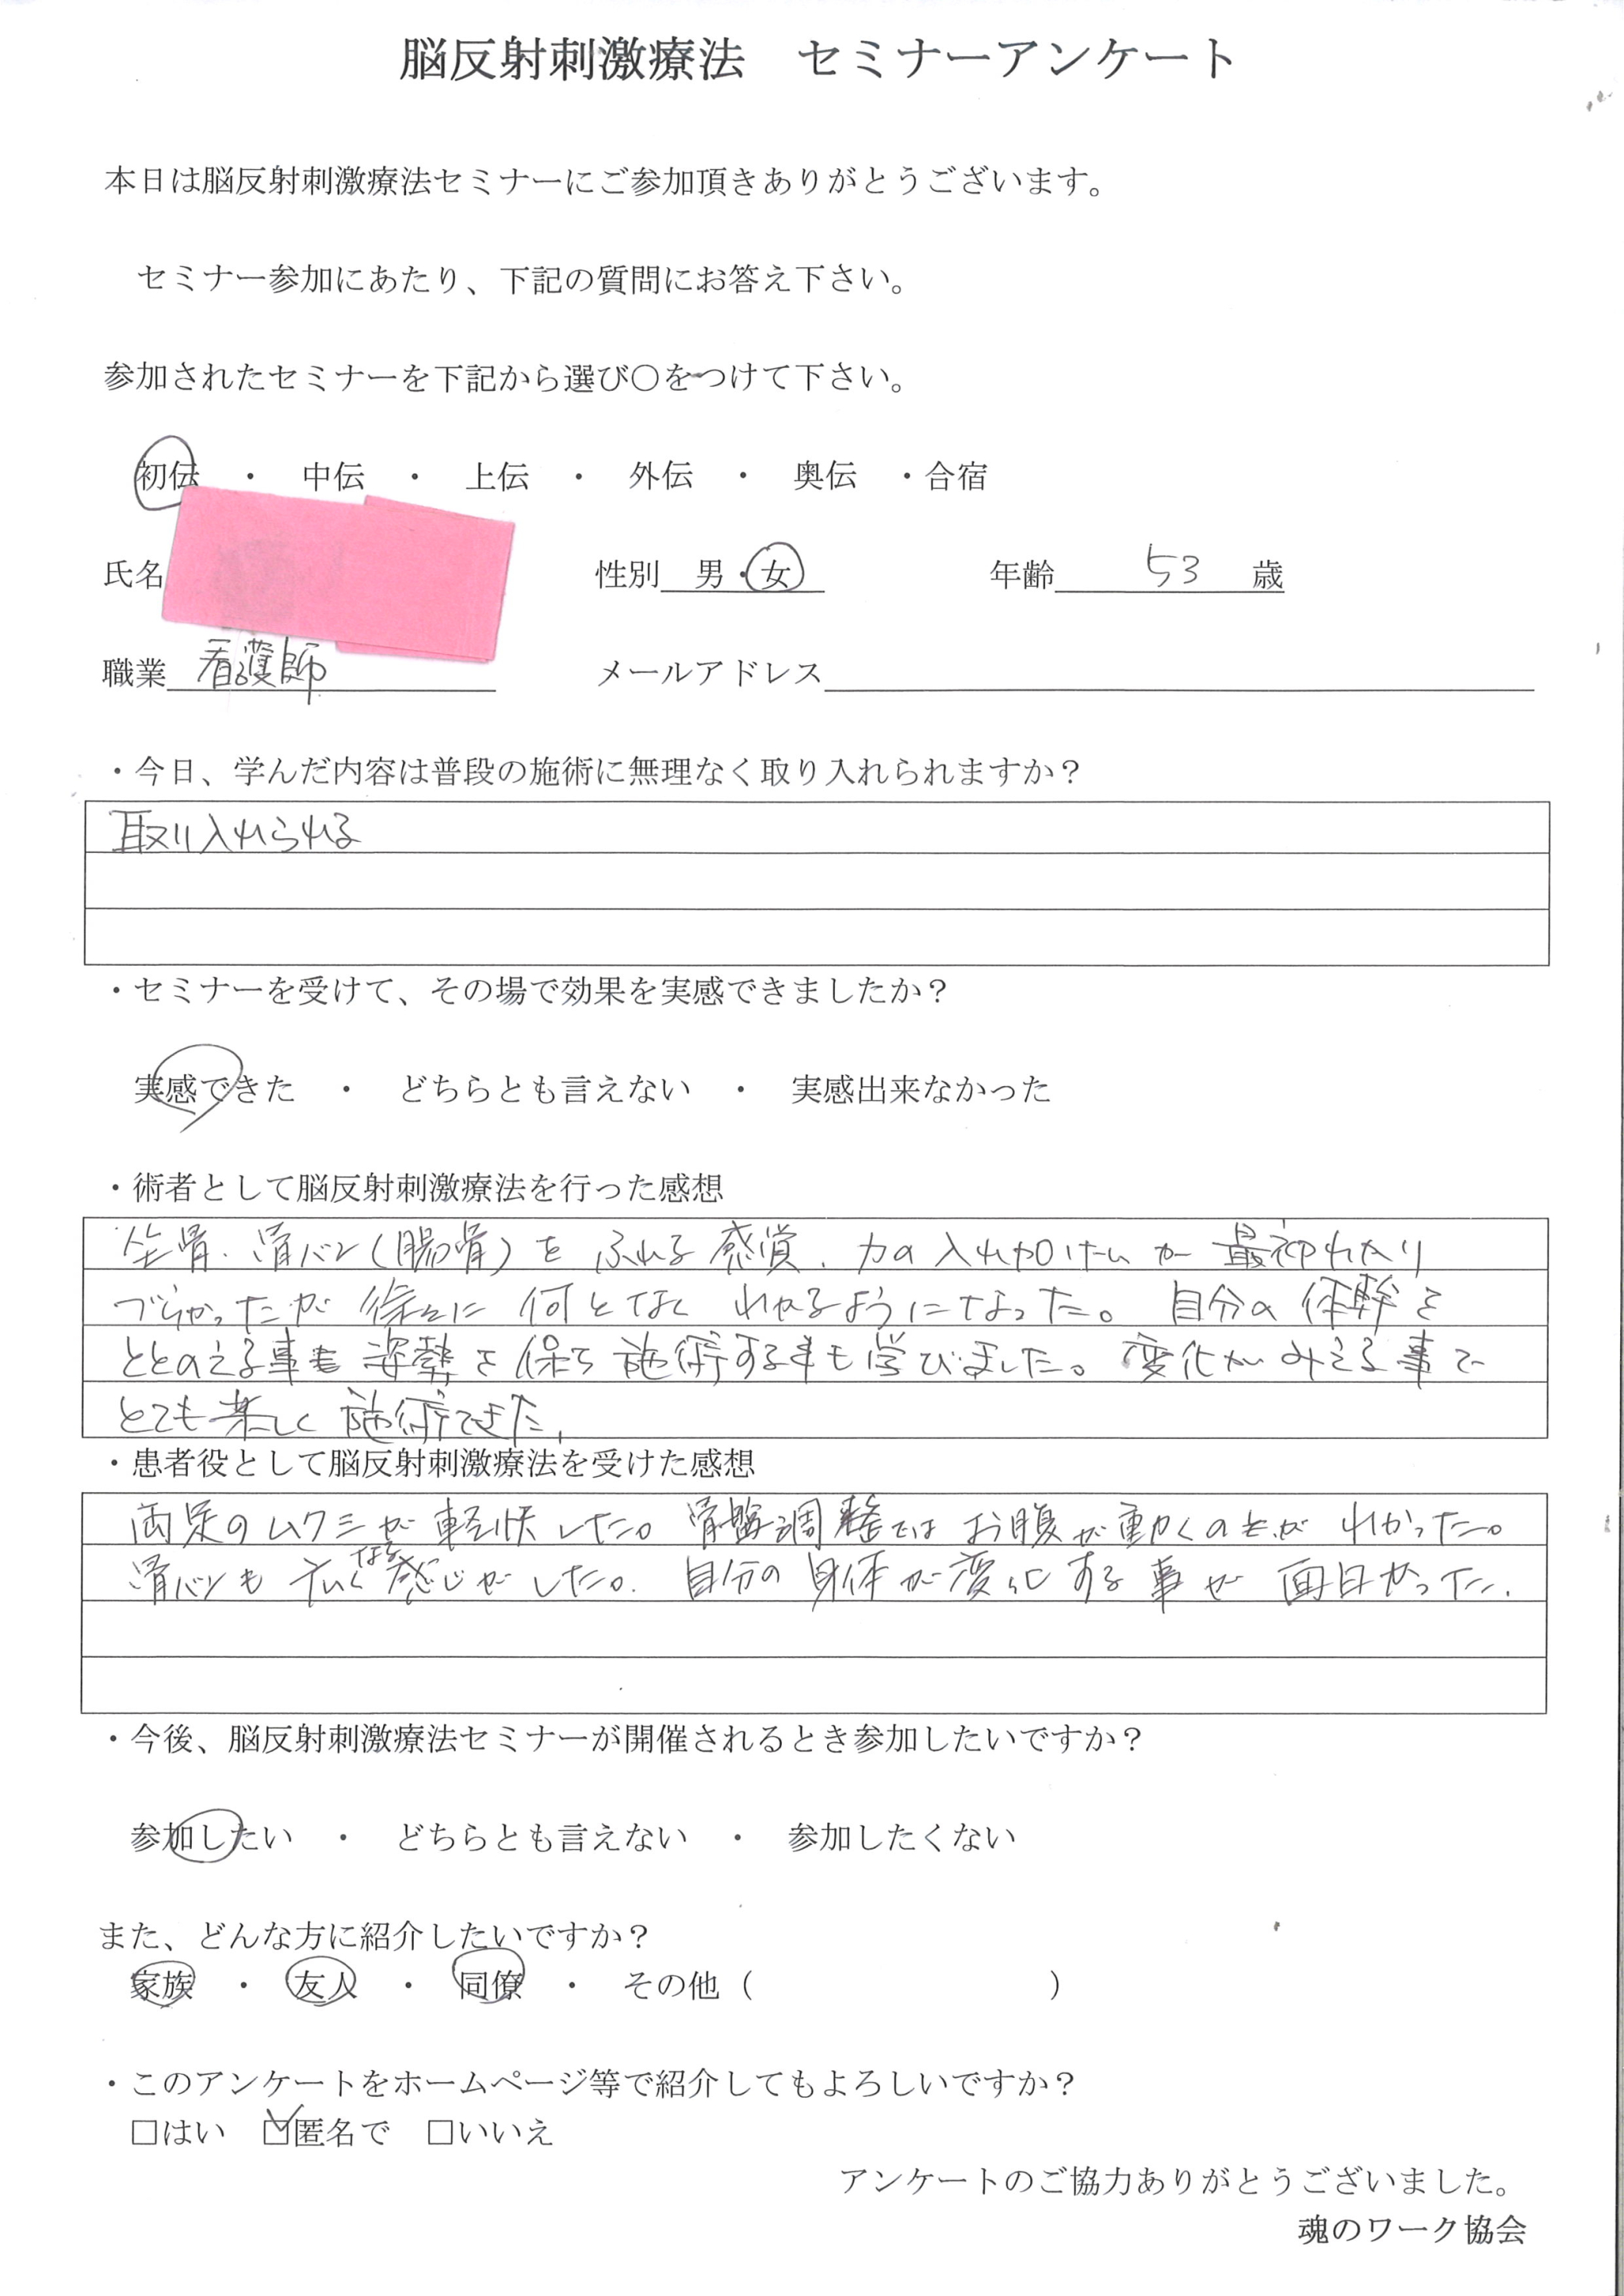 脳反射刺激療法　セミナーアンケート
本日は脳反射刺激療法セミナーにご参加頂きありがとうございます。
セミナー参加にあたり、下記の質問にお答え下さい。
参加されたセミナーを下記から選び〇をつけて下さい。
初伝　・　中伝　・　上伝　・　外伝　・　奥伝　・合宿
氏名　性別　男・女　年齢　53　歳
職業　看護師　メールアドレス
・今日、学んだ内容は普段の施術に無理なく取り入れられますか？
取り入れられる
・セミナーを受けて、その場で効果を実感できましたか？
実感できた　・　どちらとも言えない　・　実感出来なかった
・術者として脳反射刺激療法を行った感想
坐骨、骨バン(腸骨)をふれる感覚、力の入れ加けんが最初わかり
づらかったが徐々に何となくわかるようになった。自分の体幹を
ととのえる事も姿勢を保ち施術する事も学びました。変化がみえる事で
とても楽しく施術できた。
・患者役として脳反射刺激療法を受けた感想
両足のムクミが軽快した。骨盤調整ではお腹が動くのがわかった。
骨バンも広くなる感じがした。自分の身体が変化する事が面白かった。
・今後、脳反射刺激療法セミナーが開催されるとき参加したいですか？
参加したい　・　どちらとも言えない　・　参加したくない
また、どんな方に紹介したいですか？
家族　・　友人　・　同僚　・　その他（　　　　　　　　　）
・このアンケートをホームページ等で紹介してもよろしいですか？
□はい　☑匿名で　□いいえ
アンケートのご協力ありがとうございました。
魂のワーク協会